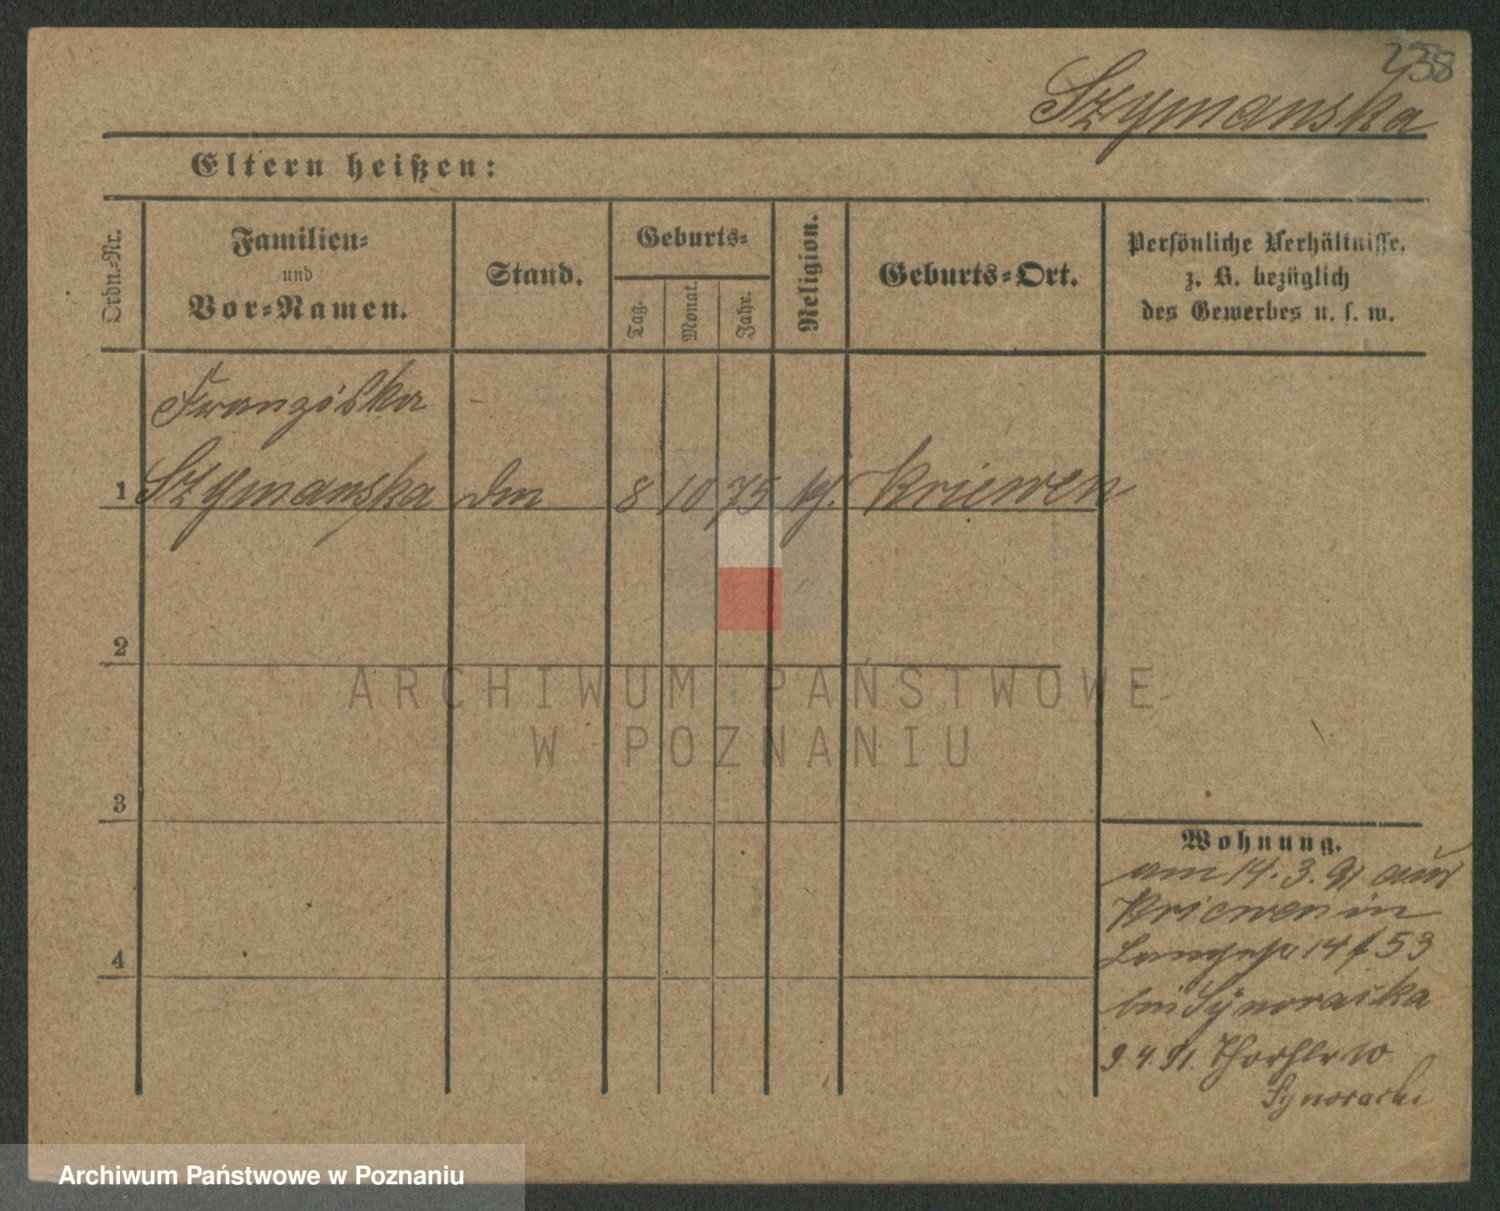 238
Szymanska
Eltern heißen:
Ordn.-Nr.
Familien-
und
Vor-Namen.
Stand.
Geburts-
Tag.
Monat.
Jahr.
Religion.
Geburts-Ort.
Persönliche Verhältnisse,
z. B. bezüglich
des Gewerbes u. s. w.
Franziska
1 Szymanska 8 10 75 Kriewen
2
3
4
Wohnung.
am 14. 3. 91 aus
Kriewen in
14 53
bei
9. 4. 91. 10
ARCHIWUM PAŃSTWOWE
W POZNANIU
Archiwum Państwowe w Poznaniu